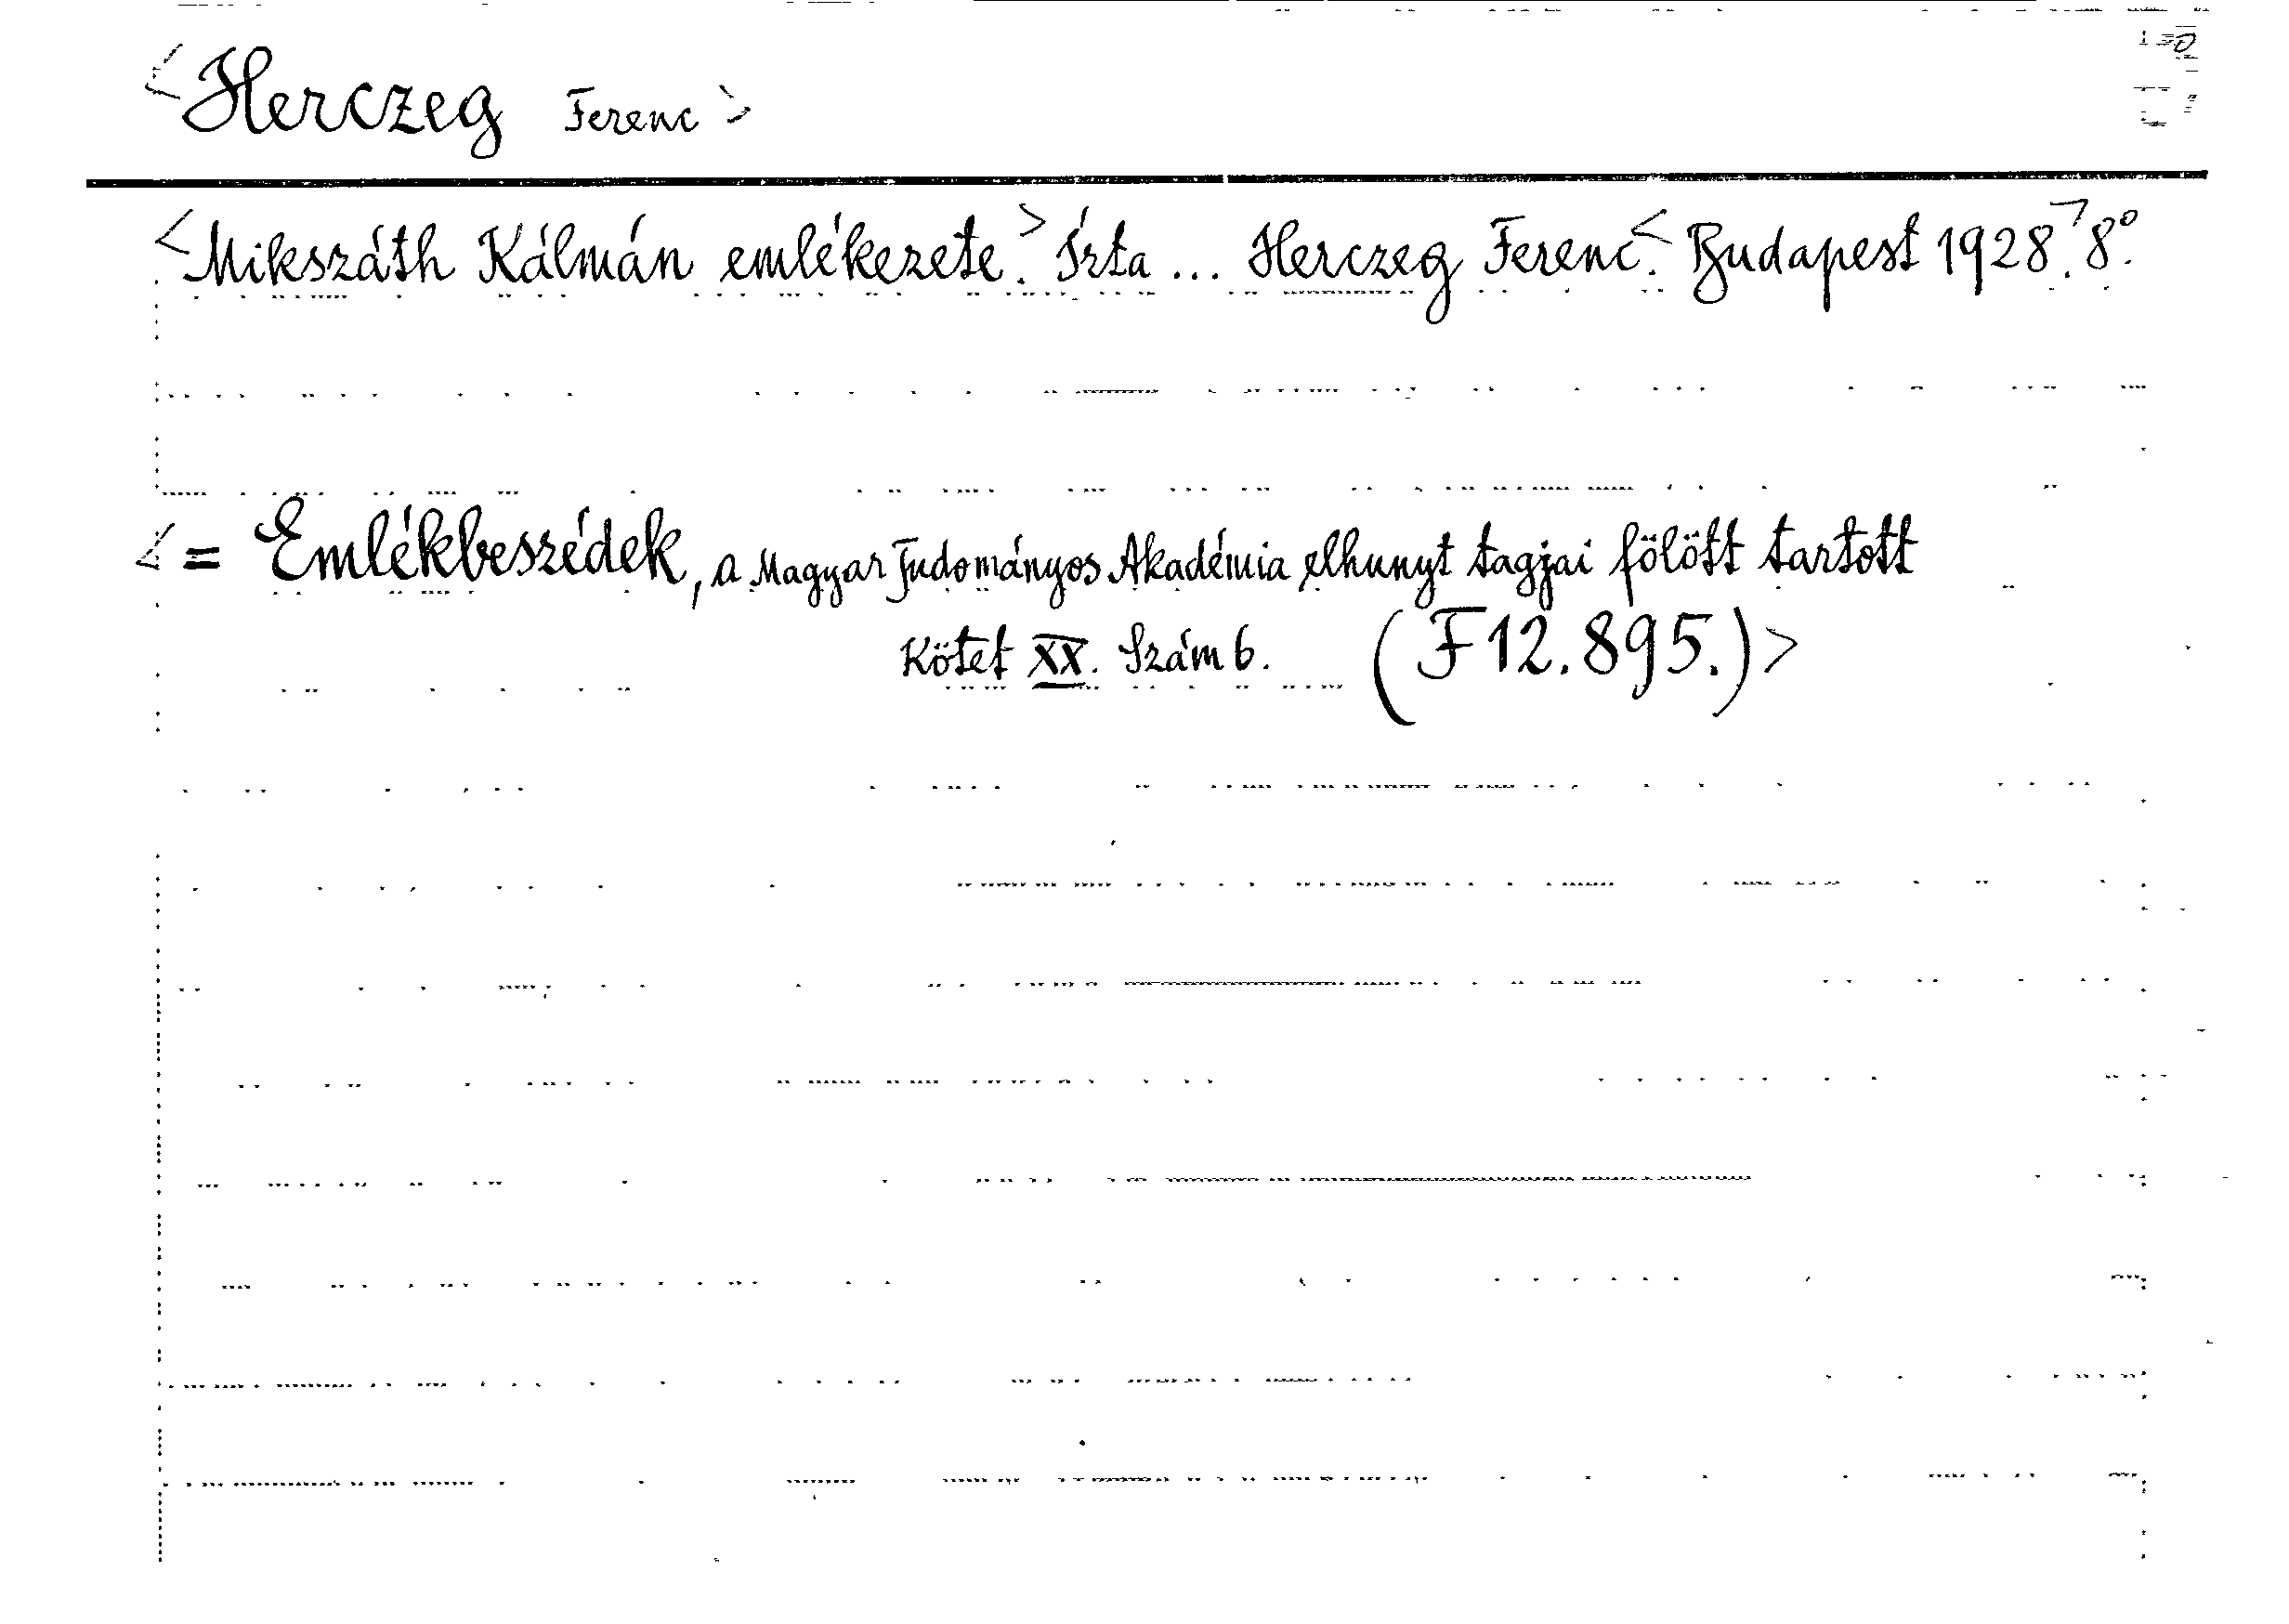 <Herczeg Ferenc>
<Mikszáth Kálmán emlékezete.> Írta ... Herczeg Ferenc.< Budapest 1928.> 8°.
<= Emlékbeszédek, a Magyar Tudományos Akadémia elhunyt tagjai fölött tartott
Kötet XX. Szám 6. (F12.895.)>